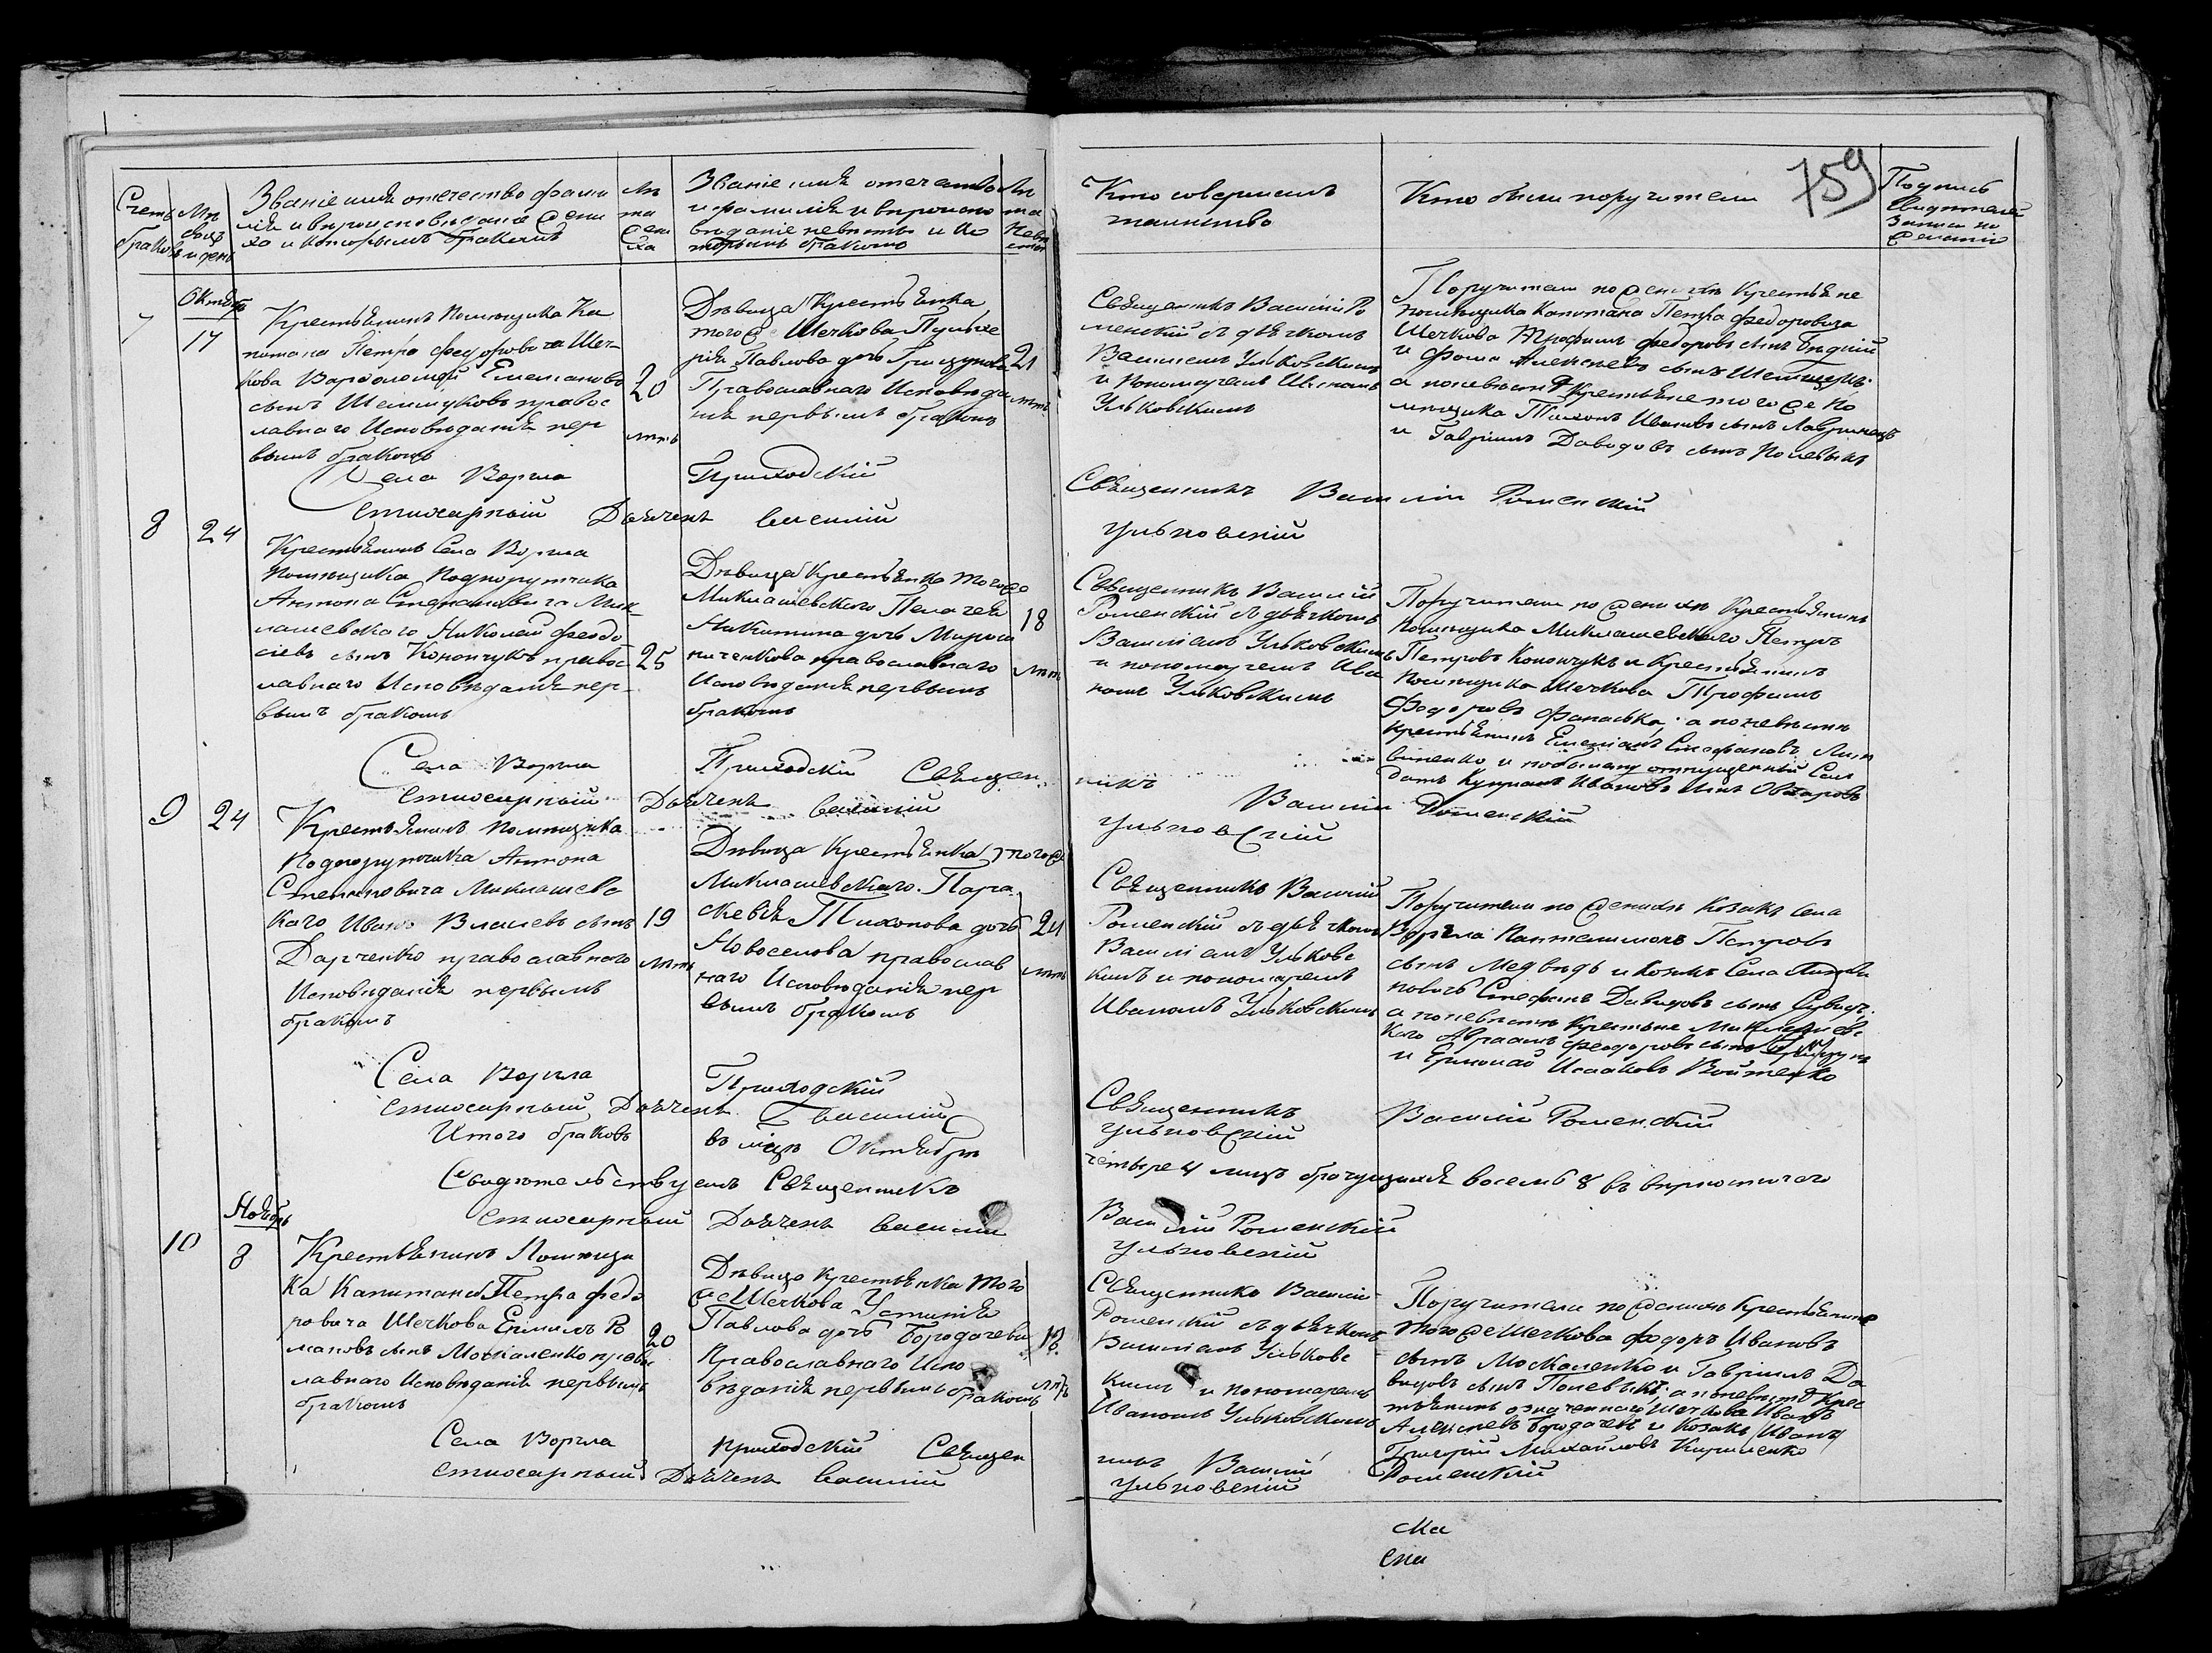 Счетъ браковъ
Мѣсяцъ и день
Званіе имя отечество фами
лія и вѣроисповѣданіе жени
ха и которымъ бракомъ
Лѣ
та
жени
ха
Званіе имя отечество
и фамилія и вѣроиспо
вѣданіе невѣсты и ко
торымъ бракомъ
Лѣ
та
невѣ
сты
Кто совершалъ
таинство
Кто были поручители
759
Подпись
свидѣтелей
записи по
желанію
7
Октябрь
17
Крестьянинъ помѣщика Ка
питана Петра Федоровича Шеч-
кова Варѳоломей Емельяновъ
сынъ Шемшуковъ правос
лавнаго Исповѣданія пер
вымъ бракомъ
20
лѣтъ
Дѣвица Крестьянка
тогоже Шечкова Пульхе
рія Павлова дочь
Православнаго Исповѣда
нія первымъ бракомъ
21
лѣтъ
Священникъ Василій Ро
менскій съ дьячкомъ
Василіемъ Ульковскимъ
и Пономаремъ Иваномъ
Ульковскимъ
Поручители по женихѣ Крестьяне
помѣщика Капитана Петра Федоровича
Шечкова Трофимъ Федоровъ сынъ Бѣдній
и Фома Алексѣевъ сынъ
а по невѣстѣ Крестьяне тогоже По
мѣщика Тихонъ Ивановъ сынъ Лавриненко
и Гавріилъ Давидовъ сынъ Полевыкъ
Села Воргла Приходскій Священникъ Василій Роменскій
стихарный Дьячекъ василій ульковскій
8
24
Крестьянинъ Села Воргла
помѣщика Подпоручика
Антона Степановича Мик-
лашевскаго Николай Феодо
сіевъ сынъ Конончукъ правос
лавнаго Исповѣданія пер-
вымъ бракомъ
25
Дѣвица Крестьянка тогоже
Миклашевскаго Пелагея
Никитина дочь Мирош
ниченкова православнаго
Исповѣданія первымъ
бракомъ
18
лѣтъ
Священникъ Василій
Роменскій съ дьячкомъ
Василіемъ Ульковскимъ
и пономаремъ Ива
номъ Ульковскимъ
Поручители по женихѣ Крестьянинъ
помѣщика Миклашевскаго Петръ
Петровъ Конончукъ и Крестьянинъ
помѣщика Шечкова Трофимъ
Федоровъ Фанаська, а по невѣстѣ
крестьянинъ Емеліанъ Стефановъ Лит
виненко и отпущенный Сол
датъ Купріанъ Ивановъ сынъ Овчаровъ
Села Воргла Приходскій Священ
никъ Василій Роменскій
стихарный Дьячекъ василій ульковскій
9
24
Крестьянинъ помѣщика
Подпоручика Антона
Степановича Миклашевс
каго Иванъ Власіевъ сынъ
Дорченко православнаго
Исповѣданія первымъ
бракомъ
19
лѣтъ
Дѣвица Крестьянка тогоже
Миклашевскаго Пара
скевія Тихонова дочь
Новоселова православ
наго Исповѣданія пер
вымъ бракомъ
24
лѣтъ
Священникъ Василій
Роменскій съ дьячкомъ
Василіемъ Ульковс
кимъ и пономаремъ
Иваномъ Ульковскимъ
Поручители по женихѣ Козакъ села
Воргла Пантелеимонъ Петровъ
сынъ Медвѣдь и Козакъ Села Литви
новичъ Стефанъ Давидовъ сынъ
а по невѣстѣ Крестьяне Миклашевс
каго Авраамъ Феодоровъ сынъ
и Ермолай Исааковъ Войтенко
Села Воргла Приходскій Священникъ Василій Роменскій
стихарный Дьячекъ василій ульковскій
Итого браковъ въ мцѣ Октябрѣ четыре 4 лицъ брачущихся восемь 8 въ вѣрности чего
Свидѣтельствуемъ Священникъ Василій Роменскій
стихарный Дьячекъ василій ульковскій
Ноябрь
10
8
Крестьянинъ Помѣщи
ка Капитана Петра Федо
ровича Шечкова Ермилъ Ро
мановъ сынъ Москаленко право
лавнаго Исповѣданія первымъ
бракомъ
20
Дѣвица крестьянка того
же Шечкова Устинія
Павлова дочь Бородачева
Православнаго Испо
вѣданія первымъ бракомъ
18
лѣтъ
Священникъ Василій
Роменскій съ дьячкомъ
Василіемъ Ульковс
кимъ и пономаремъ
Иваномъ Ульковскимъ
Поручители по женихѣ Крестьянинъ
тогоже Шечкова Федоръ Ивановъ
сынъ Москаленко и Гавріилъ Да
видовъ сынъ Полевыкъ а по невѣстѣ Крес
тьянинъ означеннаго Шечкова Иванъ
Алексѣевъ Бородачевъ и Козакъ (Иванъ)
Григорій Михайловъ Кириленко
Села Воргла приходскій Священ
никъ Василій Роменскій
стихарный Дьячекъ василій ульковскій
ска
ска